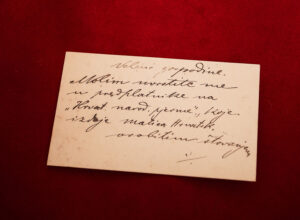 Velenj. gospodine.
Molim uvrstite me
u predplatnike na
„Hrvat. narod. pjesme“, koje
izdaje matica Hrvatska.
osobitim štovanjem